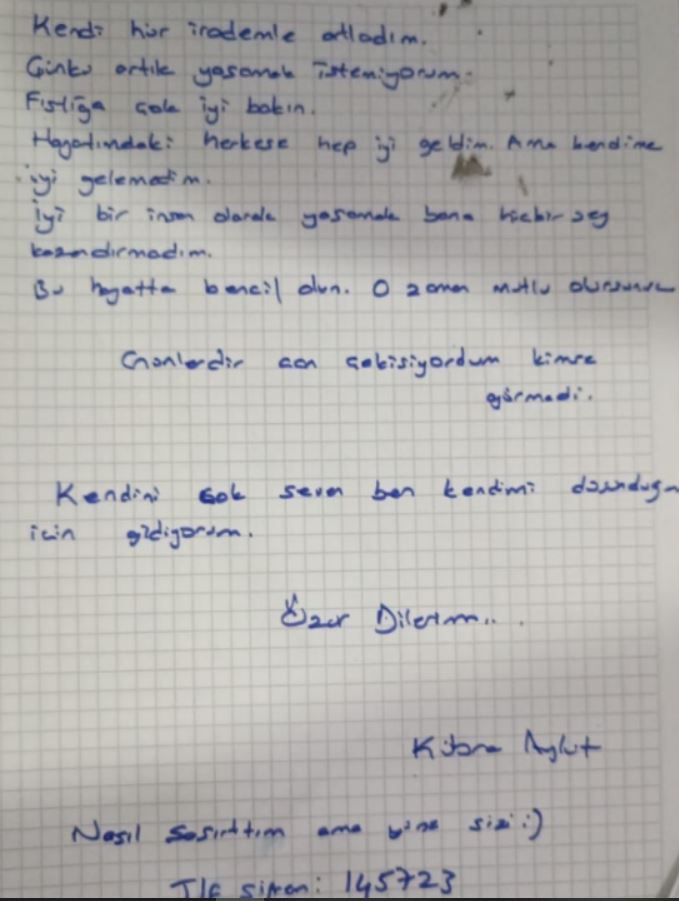 Kendi hür irademle atladım.
Çünkü artık yaşamak istemiyorum.
Fıstığa çok iyi bakın.
Hayatımdaki herkese hep iyi geldim. Ama kendime
iyi gelemedim.
iyi bir insan olarak yaşamak bana hiçbir şey
kazandırmadım.
Bu hayatta bencil olun. O zaman mutlu olursunuz
Günlerdir can çekişiyordum kimse
görmedi.
Kendini çok seven ben kendimi düşündüğüm
için gidiyorum.
Özür Dilerim...
Kübra Aykut
Nasıl şaşırttım ama yine sizi :)
Tlf şifrem: 145723